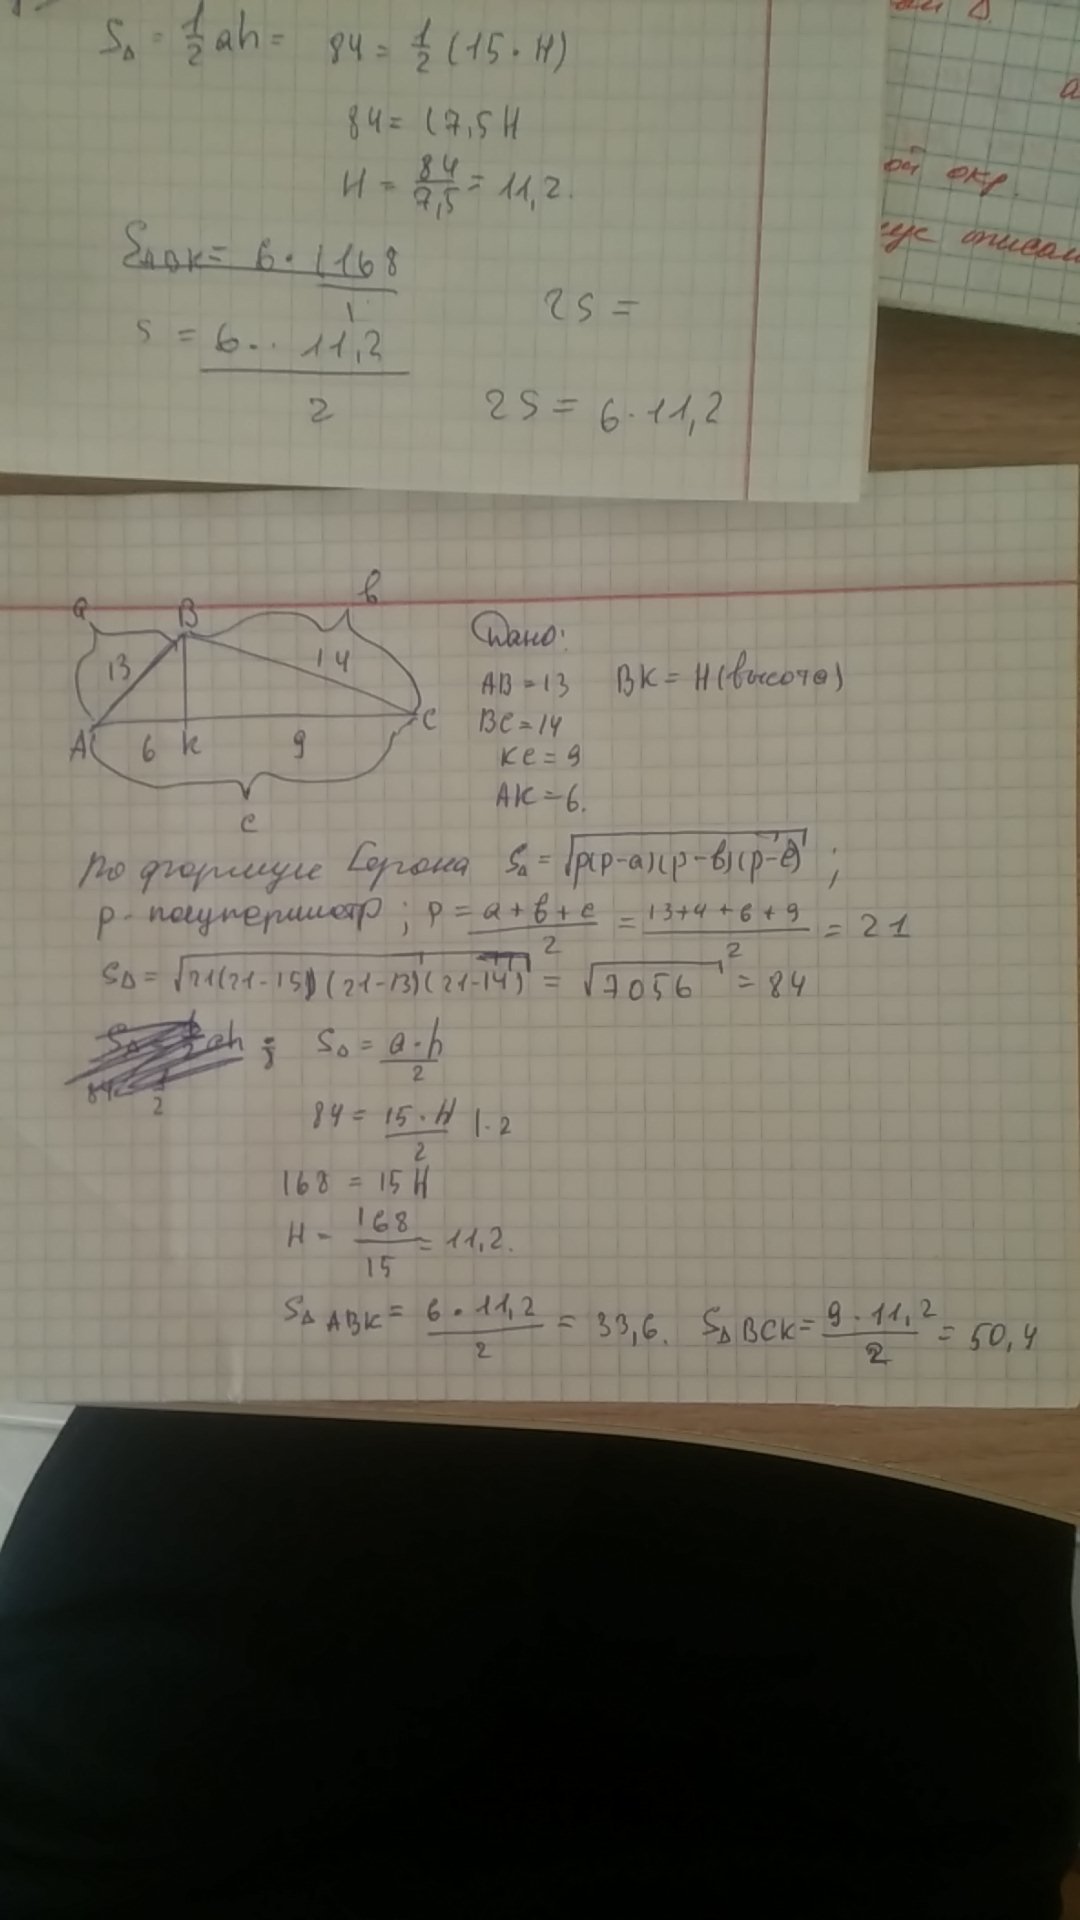 S△ = 1/2 ah = 84 = 1/2 (15 · H)
84 = (7,5 H
H = 84/7,5 = 11,2.
S△ABK = 6 · (168 / 1
S = 6 · · 11,2 / 2
2S =
2S = 6 · 11,2
й окр.
ус описан
a B в
13 14
A 6 K 9 C
c
Дано:
AB = 13 BK = H (высота)
BC = 14
KC = 9
AK = 6.
По формуле Герона S△ = √p(p-a)(p-в)(p-c) ;
p - полупериметр ; p = a + в + c / 2 = 13+4+6+9 / 2 = 21
S△ = √21(21-15)(21-13)(21-14) = √7056 = 84
ah ; S△ = a · h / 2
84 = 15 · H / 2 | · 2
168 = 15 H
H = 168 / 15 = 11,2.
S△ABK = 6 · 11,2 / 2 = 33,6. S△BCK = 9 · 11,2 / 2 = 50,4